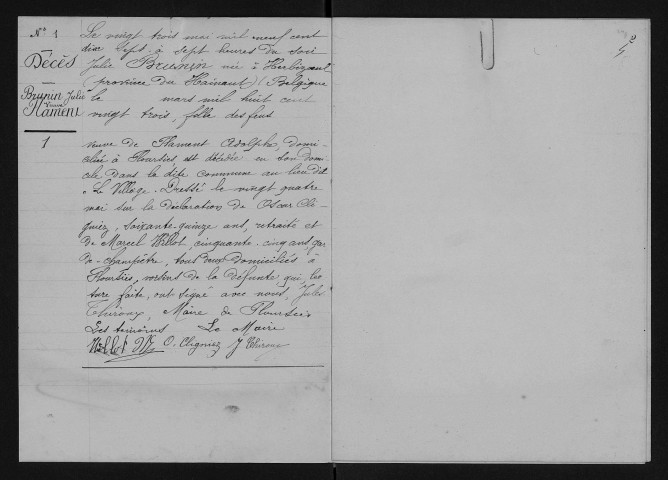 N° 1
Décès
Brunin Julie
Veuve
Flament
1
Le vingt trois mai mil neuf cent
dix sept à sept heures du soir
Julie Brunin née à
(province du Hainaut) (Belgique
le mars mil huit cent
vingt trois, fille des feus
veuve de Flament Adolphe, domi-
ciliée à Floursies est décédée en son domi-
cile dans la dite commune au lieu dit
" Le Village. Dressé le vingt quatre
mai sur la déclaration de Oscar Cli-
gniez, soixante-quinze ans, retraité et
de Marcel Willot, cinquante-cinq ans, gar
de-champêtre, tous deux domiciliés à
Floursies, voisins de la défunte qui, lec
ture faite, ont signé avec nous, Jules
Thiroux, Maire de Floursies
Les témoins Le Maire
Willot M O. Cligniez J Thiroux
2